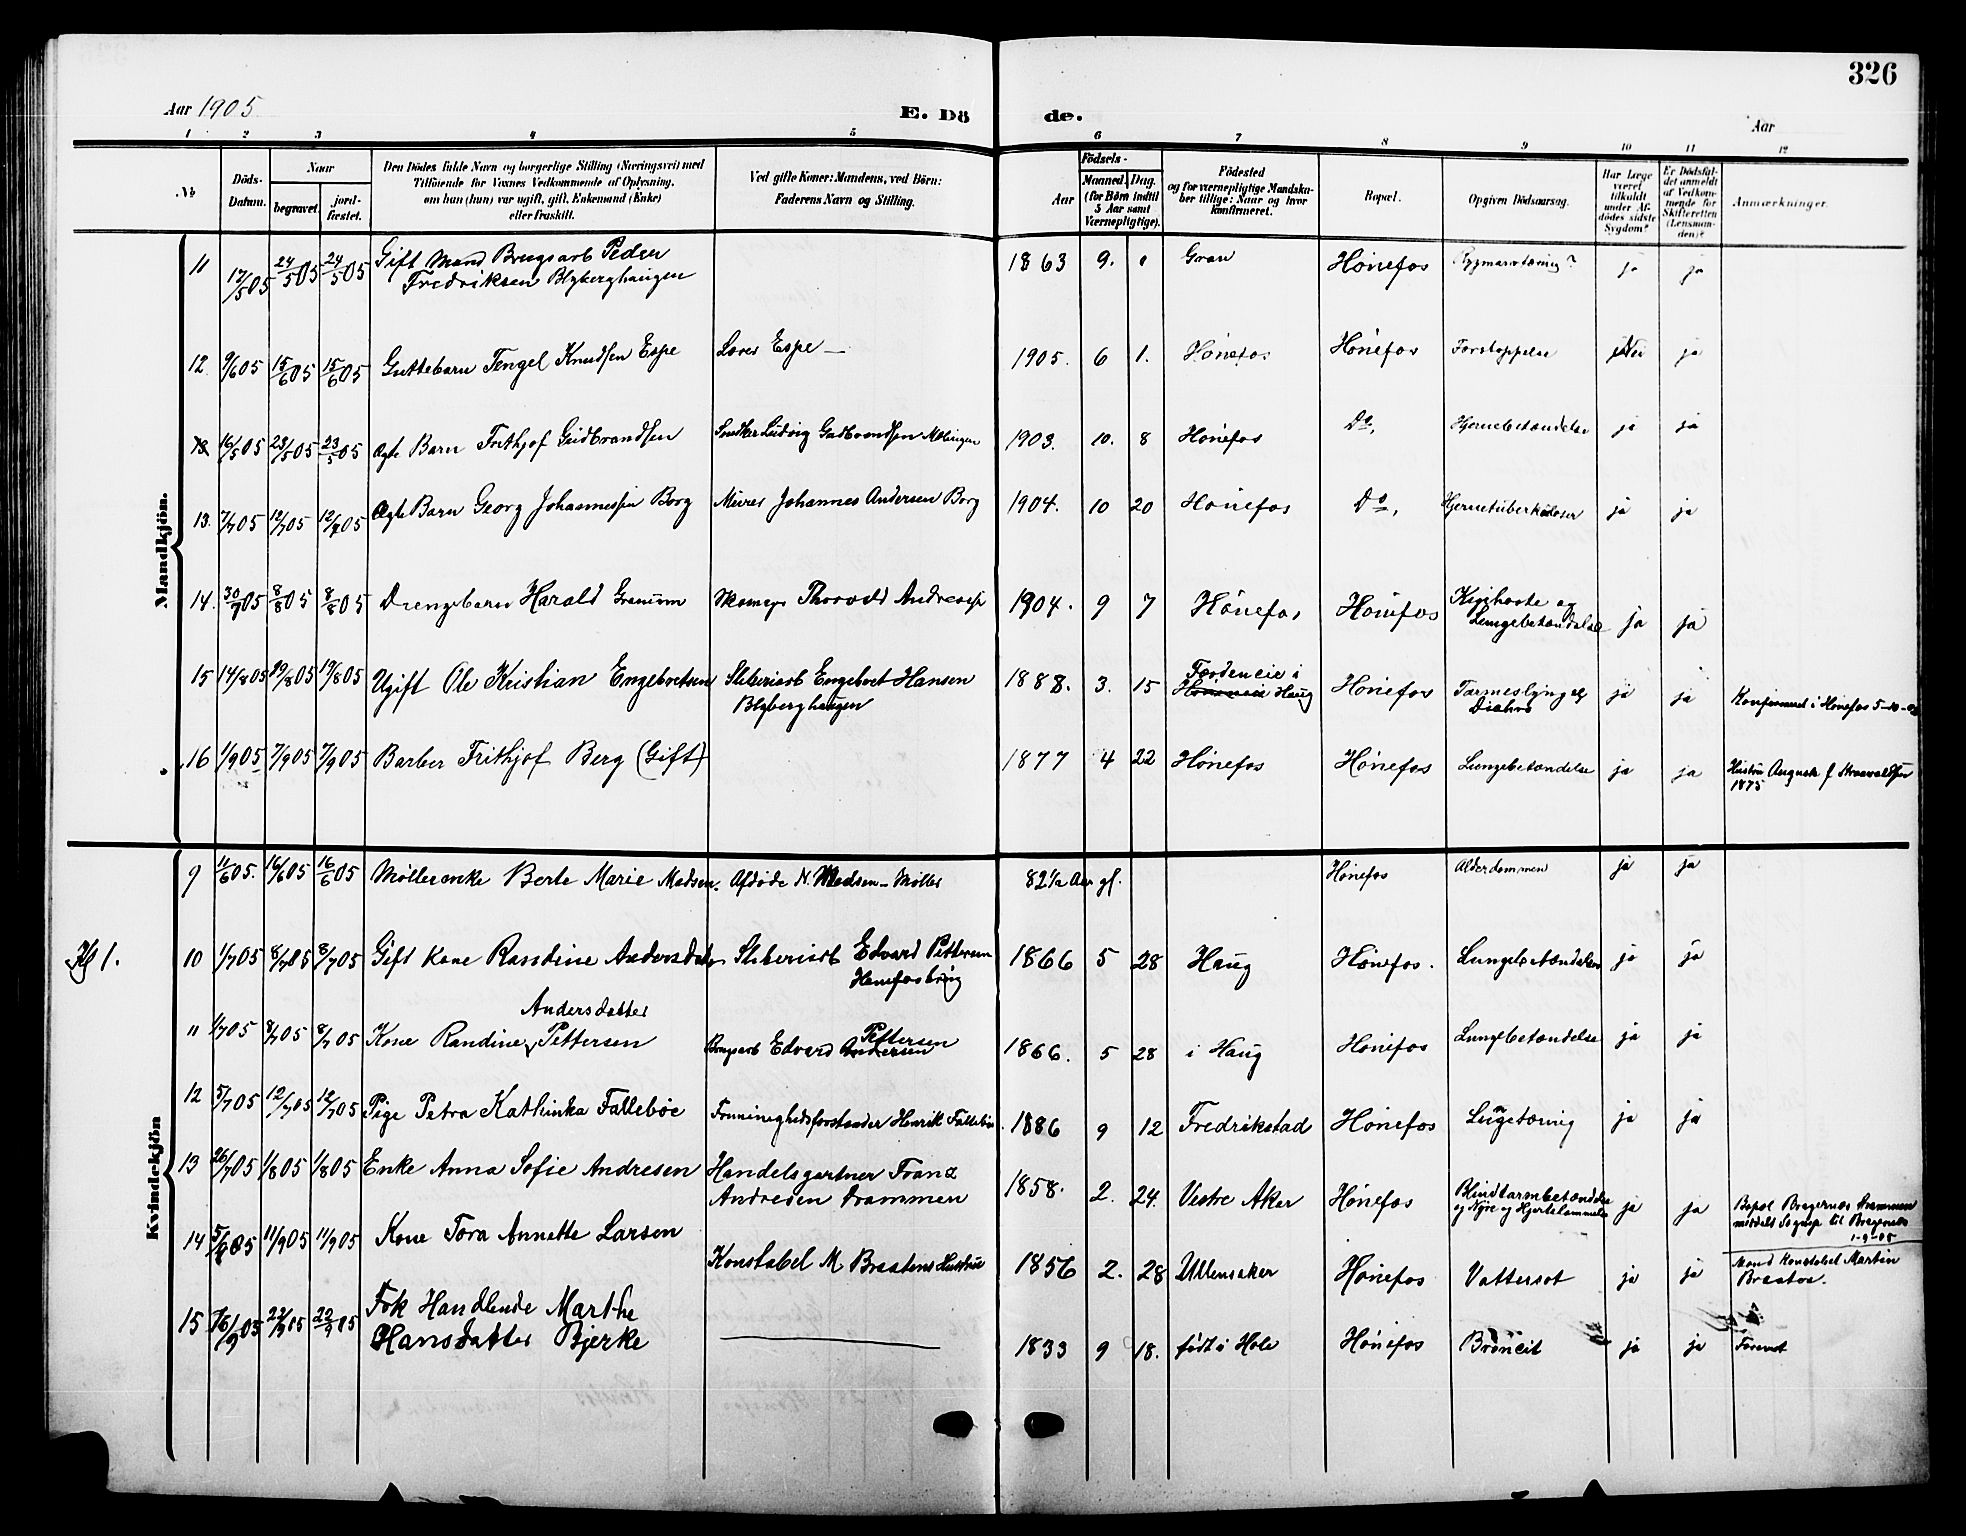 326
Aar 1905
E. Dö de.
Aar
1 2 3 4 5 6 7 8 9 10 11 12
No
Döds-Datum.
Naar
begravet.
jord-fæstet.
Den Dödes fulde Navn og borgerlige Stilling (Næringsvei) med
Tilföiende for Voxnes Vedkommende af Oplysning,
om han (hun) var ugift, gift, Enkemand (Enke)
eller fraskilt.
Ved gifte Koner: Mandens, ved Börn:
Faderens Navn og Stilling.
Födsels-
Aar
Maaned.
Dag.
(for Börn indtil
5 Aar samt
Værnepligtige).
Födested
og for værnepligtige Mandska-
ber tillige: Naar og hvor
konfirmeret.
Bopæl.
Opgiven Dödsaarsag.
Har Læge
været
tilkaldt
under Af-
dödes sidste
Sygdom?
Er Dödsfal-
det anmeldt
af Vedkom-
mende for
Skifteretten
(Lensman-
den)?
Anmærkninger.
Mandkjön.
11 17/5 05 24/5 05 24/5 05 Gift Mand Brugsarb Peder 1863 9. Gran Hönefos Rygmarvtæring? ja ja
Fredriksen Blyberghaugen
12. 9/6 05 15/6 05 15/6 05 Guttebarn Tengel Knudsen Espe Lærer Espe — 1905. 6 1. Hönefos Hönefos Forstoppelse Nei ja
16/5 05 23/5 05 23/5 05 Ægte Barn Frithjof Gudbrandsen Ludvig Gudbrandsen 1903. 10. 8 Hönefos Do, Hjernebetændelse ja ja
13. 7/7 05 12/7 05 12/7 05 Ægte Barn Georg Johannessen Borg Murer Johannes Andersen Borg 1904. 10 20 Hönefos Do, Hjernetuberkuloser ja ja
14. 30/7 05 8/8 05 8/8 05 Drengebarn Harald Granum Skomager Thorvald 1904. 9 7 Hönefos Hönefos Kighoste og
Lungebetændelse ja ja
15 14/8 05 19/8 05 19/8 05 Ugift Ole Kristian Engebretsen Sliberiarb Engebret Hansen 1888. 3. 15 i Haug Hönefos Tarmeslyng og ja ja Konfirmeret i Hönefos 5-10-02
Blyberghaugen
16 1/9 05 7/9 05 7/9 05 Barber Frithjof Berg (Gift) 1877 4 22 Hönefos Hönefos Lungebetændelse ja ja Hustru f
1875
Kvindekjön
9 11/6 05. 16/6 05 16/6 05 Möllerenke Berte Marie Madsen. Afdöde N. Madsen – Möller 82 1/2 Aar gl. Hönefos Alderdommen ja ja
10 1/7 05 8/7 05 8/7 05 Gift Kone Randine Andersdatter Sliberiarb Edvard Pettersen 1866 5 28 Haug Hönefos. Lungebetændelse ja ja
Hønefosbrug
Andersdatter
11 1/7 05 8/7 05 8/7 05 Kone Randine Pettersen Brugsarb Edvard Andersen Pettersen 1866. 5 28 i Haug Hönefos Lungebetændelse ja ja
12 5/7 05 12/7 05 12/7 05 Pige Petra Kathinka Falleböe Henrik Falleböe 1886 9 12 Fredrikstad Hönefos Lungetæring ja ja
13 26/7 05 1/8 05 1/8 05 Enke Anna Sofie Andresen Handelsgartner Franz 1858. 2. 24. Vestre Aker Hönefos Blindtarmbetændelse ja ja Bopæl Bragernæs Drammen
Andresen Drammen og Nyre og Hjertelammelse til Bragernæs
1-9-05
14 5/9 05 11/9 05 11/9 05 Kone Tora Annette Larsen Konstabel M Braatens Hustru 1856 2. 28 Ullensaker Hönefos Vattersot ja ja Mand Konstabel Martin
Braaten.
15 16/9 05 22/9 05 22/9 05 Frk Handlende Marthe 1833 9 18. födt i Hole Hönefos ja ja
Hansdatter Bjerke